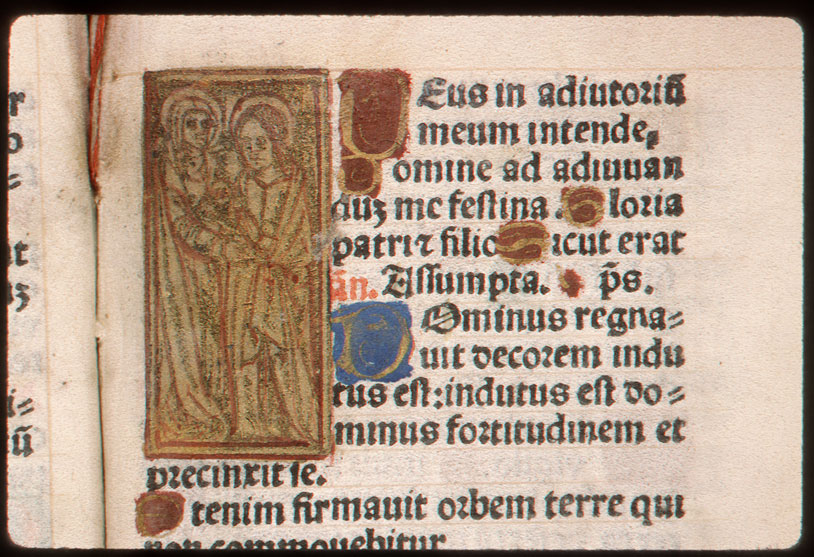 Deus in adiutoriū
meum intende,
Domine ad adiuuan
duꝫ me festina. Gloria
patri ⁊ filio Sicut erat
Añ. Assumpta. p̄s.
DOminus regna⸗
uit decorem indu
tus est: indutus est do⸗
minus fortitudinem et
precinxit se.
Etenim firmauit orbem terre qui
non commouebitur